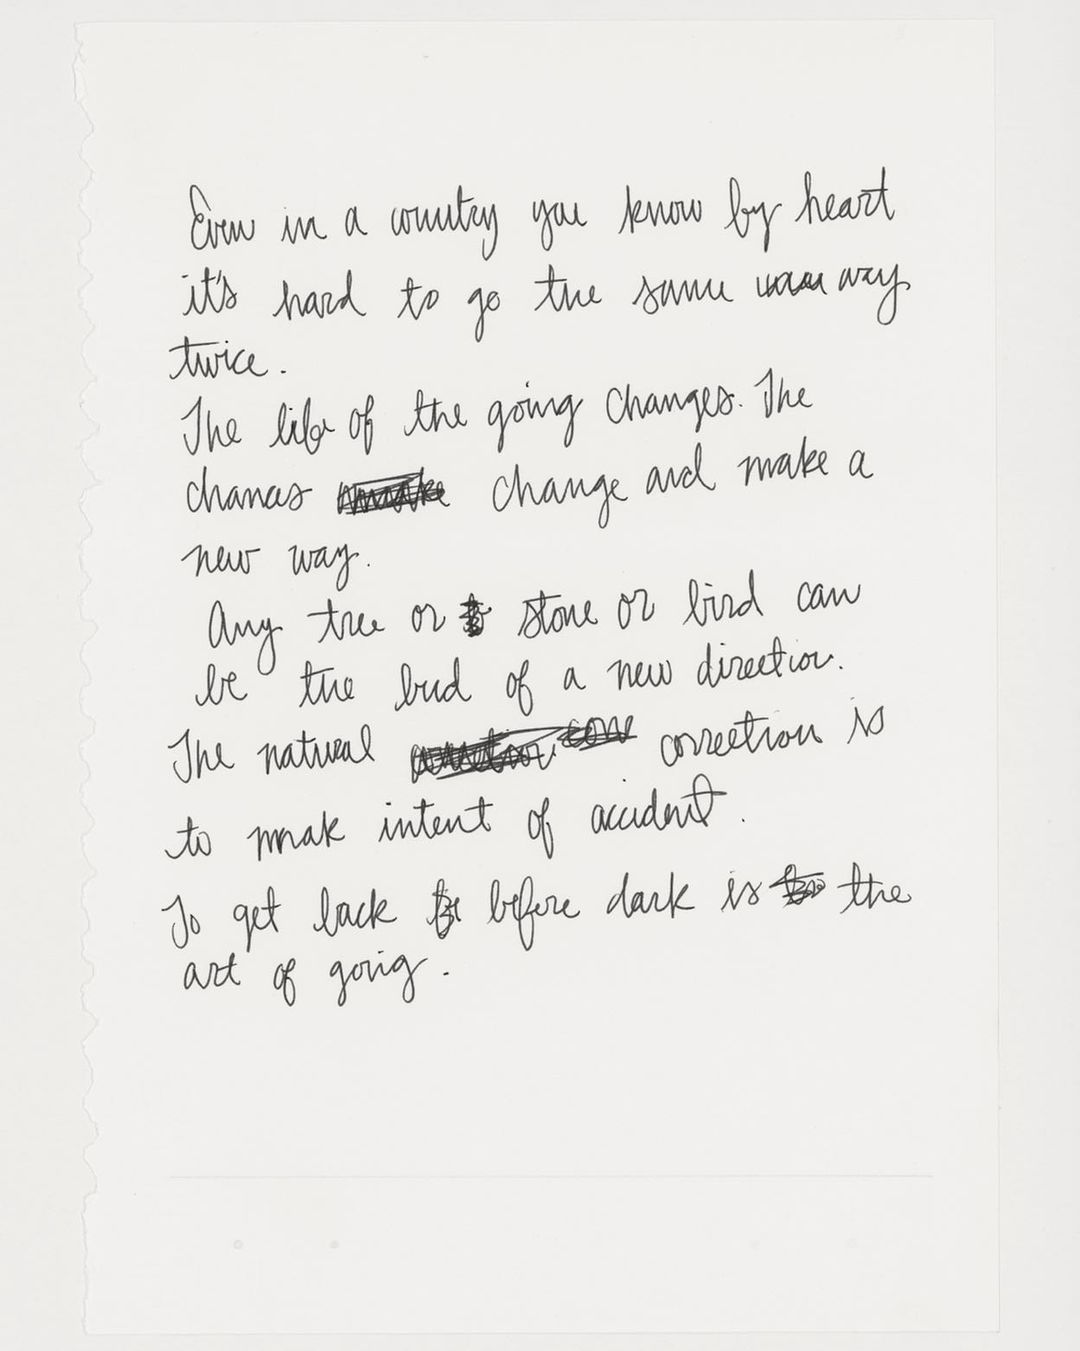 Even in a country you know by heart
it's hard to go the same way
twice.
The life of the going changes. The
chances change and make a
new way.
Any tree or stone or bird can
be the bud of a new direction.
The natural correction is
to mak intent of accident.
To get back before dark is the
art of going.